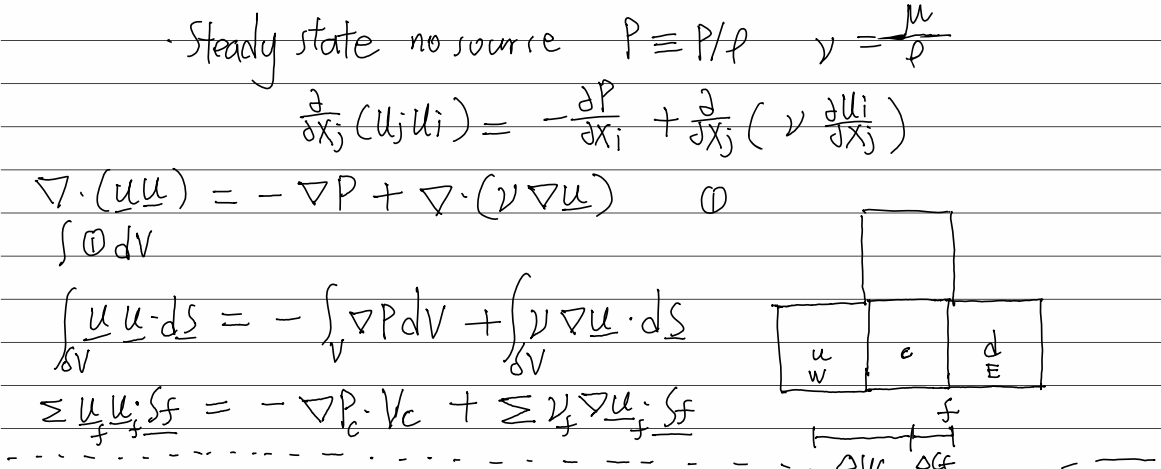 · Steady state no source P ≡ P/ρ ν = μ/ρ
∂/∂xj (uj ui) = - ∂P/∂xi + ∂/∂xj ( ν ∂ui/∂xj )
∇·(u u) = - ∇P + ∇·(ν ∇u) ①
∫ ① dV
∫δV u u·dS = - ∫V ∇P dV + ∫δV ν ∇u · dS
u c d
W E
Σ uf uf·Sf = - ∇Pc · Vc + Σ νf ∇uf · Sf
f